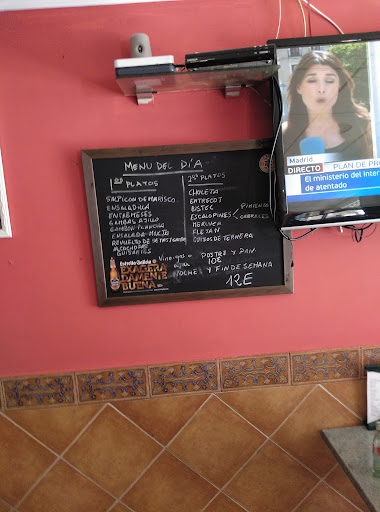 MENU DEL DÍA
1OS PLATOS
SALPICON DE MARISCO.
ENSALADILLA
ENTREMESES
GAMBAS AJILLO
GAMBON PLANCHA
ENSALADA MIXTA
REVUELTO DE
GUISANTES
2OS PLATOS
CHULETA
ENTRECOT
BISTEC
ESCALOPINES
PIMIENTA
CABRALES
MERLUZA
FLETAN
GUISO DE TERNERA
Vino
POSTRE Y PAN
10E
NOCHE Y FIN DE SEMANA
12E
Estrella Galicia
EXAGERA
DAMENTE
BUENA
Madrid
DIRECTO PLAN DE PR
El ministerio del Inter
de atentado